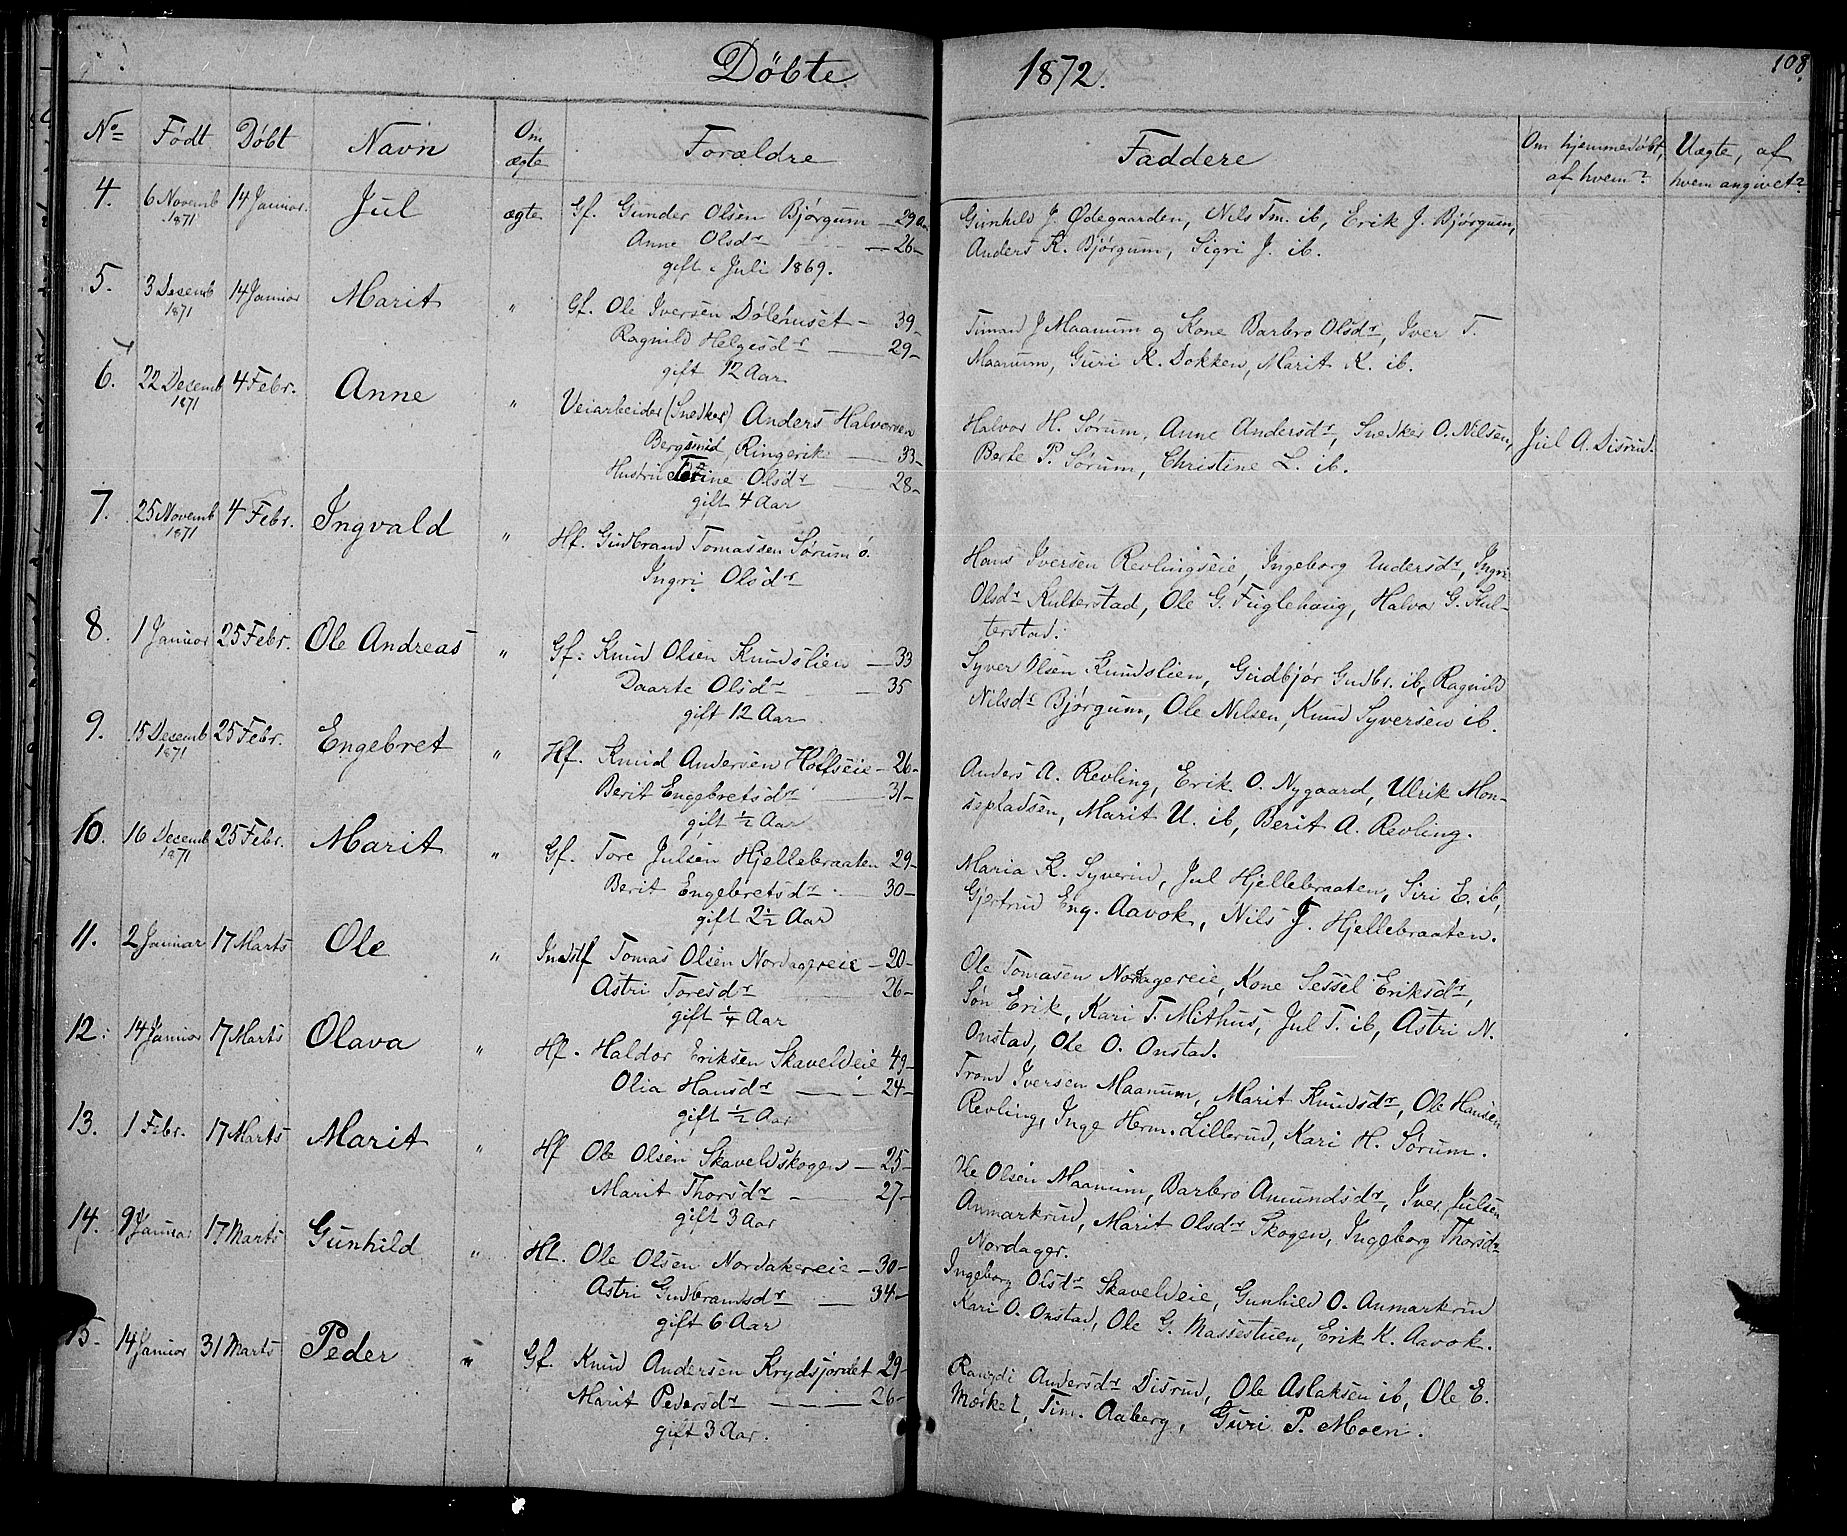 Døbte 1872. 108
No Født Døbt Navn Om ægte Forældre Faddere Om hjemmedøbt, af hvem? Uægte, af hvem angivet?
4. 6 Novemb 1871 14 Januar. Jul ægte Gf. Gunder Olsen Bjørgum — 29 Aar
Anne Olsdr — 26 —
gift i Juli 1869.
Gunhild J. Ødegaarden, Nils Tm. ib, Erik J. Bjørgum,
Anders K. Bjørgum, Sigri J. ib.
5. 3 Desemb 1871 14 Januar Marit " Gf. Ole Iversen Dølehuset — 39 —
Ragnild Helgesdr — 29 —
gift 12 Aar
Timand J Maanum og Kone Barbro Olsdr, Iver T.
Maanum, Guri K. Dokken, Marit K. ib.
6. 22 Desemb 1871 4 Febr. Anne " Veiarbeider (Snedker) Anders Halvorsen
Bergsmid, Ringerik — 33 —
Hustru Olsdr — 28 —
gift 4 Aar
Halvor H. Sørum, Anne Andersdr, Snedker O. Nilsen,
Berte P. Sørum, Christine L. ib.
Jul A. Disrud.
7. 25 Novemb 1871 4 Febr. Ingvald " Hf. Gudbrand Tomassen Sørum ø.
Ingri Olsdr
Hans Iversen Revlingseie, Ingeborg Andersdr, Ingri
Olsdr Kulterstad, Ole G. Fuglehaug, Halvor G. Kul-
terstad.
8. 1 Januar 25 Febr. Ole Andreas " Gf. Knud Olsen Knudslien — 33
Daarte Olsdr — 35
gift 12 Aar
Syver Olsen Knudslien, Gudbjør Gudbr. ib, Ragnild
Nilsdr Bjørgum, Ole Nilsen, Knud Syversen ib.
9. 15 Desemb 1871 25 Febr. Engebret " Hf. Knud Andersen Hofseie — 26 —
Berit Engebretsdr — 31 —
gift ½ Aar
Anders A. Revling, Erik O. Nygaard, Ulrik Mon-
sepladsen, Marit U. ib, Berit A. Revling.
10. 16 Decemb 1871 25 Febr. Marit " Gf. Tore Julsen Hjellebraaten 29 —
Berit Engebretsdr — 30 —
gift 2½ Aar
Maria K. Syverud, Jul Hjellebraaten, Siri E. ib,
Gjertrud Eng. Aavok, Nils J. Hjellebraaten.
11. 2 Januar 17 Marts Ole " Indstf Tomas Olsen Nordagereie — 20 —
Astri Toresdr — 26 —
gift ¼ Aar
Ole Tomasen Nordagereie, Kone Sessel Eriksdr,
Søn Erik, Kari T. Mithus, Jul T. ib, Astri N.
Onstad, Ole O. Onstad.
12. 14 Januar 17 Marts Olava " Hf. Haldor Eriksen Skaveldeie 49 —
Olia Hansdr — 24 —
gift ½ Aar
Trond Iversen Maanum, Marit Knudsdr, Ole Hansen
Revling, Inge Herm. Lillerud, Kari H. Sørum.
13. 1 Febr. 17 Marts Marit " Hf Ole Olsen Skaveldskogen — 25 —
Marit Thorsdr — 27 —
gift 3 Aar
Ole Olsen Maanum, Barbro Amundsdr, Iver Julsen
Anmarkrud, Marit Olsdr Skogen, Ingeborg Thorsdr
Nordager.
14. 9 Januar 17 Marts Gunhild " Hf. Ole Olsen Nordakereie — 30 —
Astri Gudbrandsdr — 34 —
gift 6 Aar
Ingeborg Olsdr Skaveldeie, Gunhild O. Anmarkrud
Kari O. Onstad, Ole G. Massestuen, Erik K. Aavok.
15. 14 Januar 31 Marts Peder " Gf. Knud Andersen Krydsjordet 29 —
Marit Pedersdr — 26 —
gift 3 Aar.
Randi Andersdr Disrud, Ole Aslaksen ib, Ole E.
Mørket, Tim. Aaberg, Guri P. Moen.